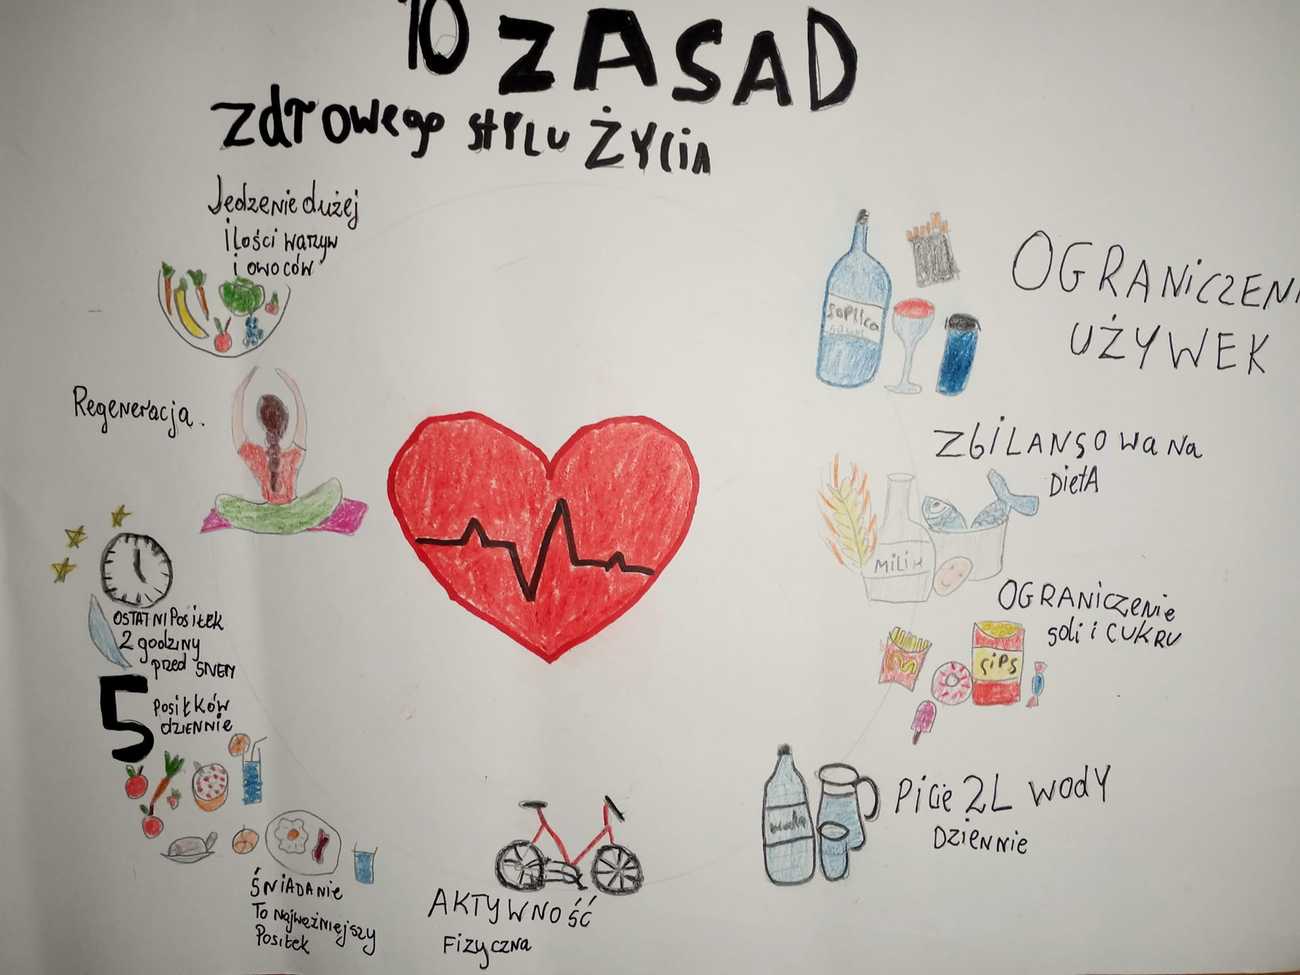 10 ZASAD
zdrowego stylu życia
Jedzenie dużej
ilości warzyw
i owoców
Regeneracja.
OSTATNI Posiłek
2 godziny
przed SNEM
5 Posiłków
dziennie
ŚNIADANIE
To Najważniejszy
Posiłek
AKTYWNOŚĆ
Fizyczna
Soplica
OGRANICZENI
UŻYWEK
ZbiLANSOWANA
DietA
MILK
OGRANICZENIE
soli i CUKRU
ÇiPS
woda
Picie 2L WODY
Dziennie